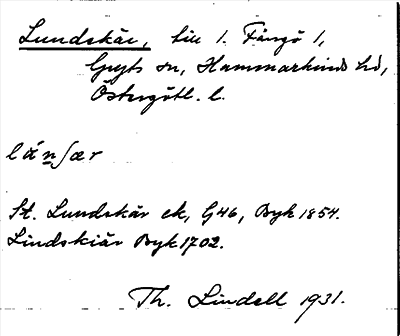 Lundskär, till 1. Fångö 1,
Gryts sn, Hammarkinds hd,
Östergötl. l.
länʃær
St. Lundskär ek, G46, Byk 1854.
Lindskiär Byk 1702.
Th. Lindell 1931.